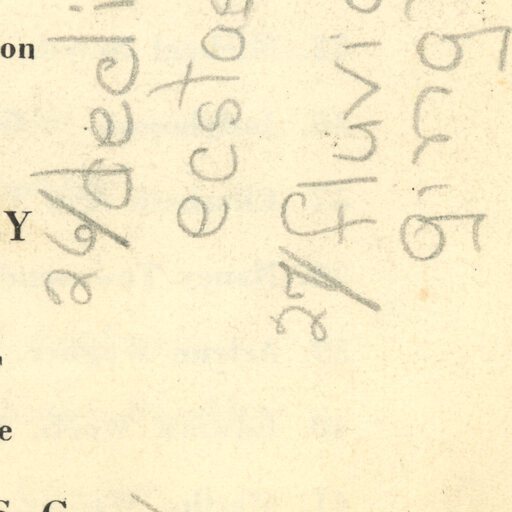 on
Y
e
S. C
26/decli
ecstas
27/fluvi
ging